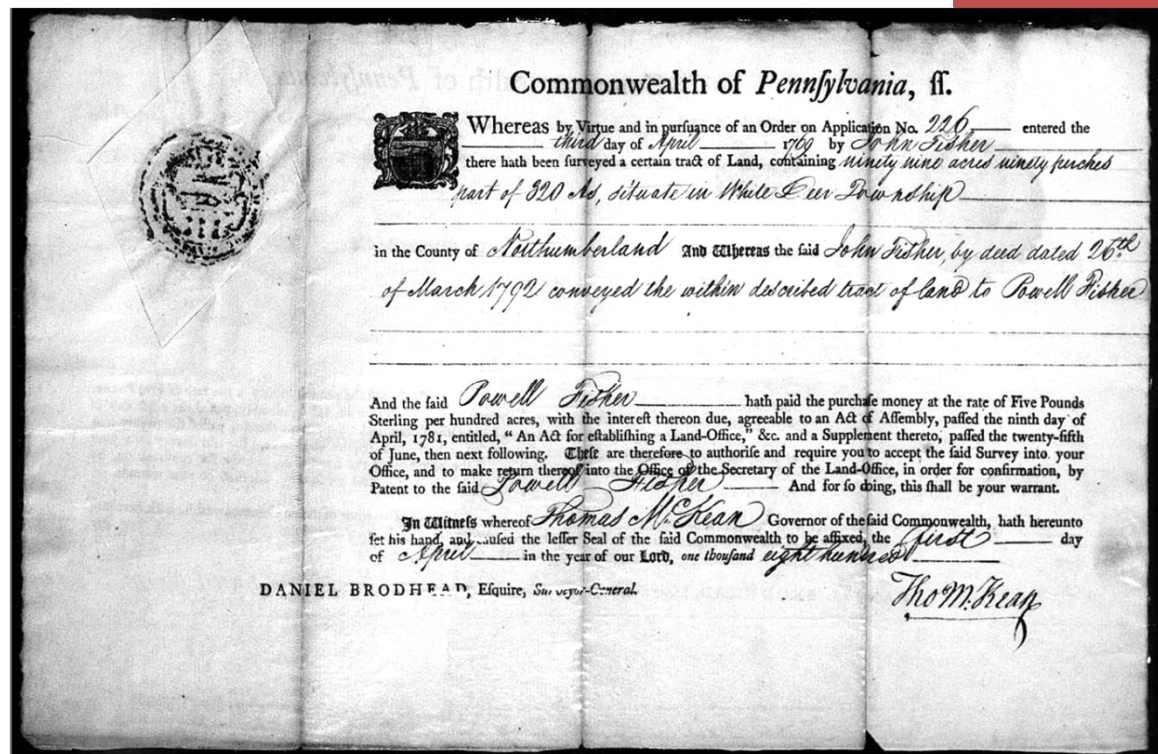 Commonwealth of Pennſylvania, ſſ.
Whereas by Virtue and in purſuance of an Order on Application No. 226 entered the
third day of April 1769 by John Fisher
there hath been ſurveyed a certain tract of Land, containing ninety nine acres ninety perches
part of 320 As, situate in White Deer Township
in the County of Northumberland And Whereas the ſaid John Fisher, by deed dated 26th
of March 1792 conveyed the within described tract of land to Powell Fisher
And the ſaid Powell Fisher hath paid the purchaſe money at the rate of Five Pounds
Sterling per hundred acres, with the intereſt thereon due, agreeable to an Act of Aſſembly, paſſed the ninth day of
April, 1781, entitled, “ An Act for eſtabliſhing a Land-Office,” &c. and a Supplement thereto, paſſed the twenty-fifth
of June, then next following. Theſe are therefore to authoriſe and require you to accept the ſaid Survey into your
Office, and to make return thereof into the Office of the Secretary of the Land-Office, in order for confirmation, by
Patent to the ſaid Powell Fisher And for ſo doing, this ſhall be your warrant.
In Witneſs whereof Thomas McKean Governor of the ſaid Commonwealth, hath hereunto
ſet his hand, and cauſed the leſſer Seal of the ſaid Commonwealth to be affixed, the first day
of April in the year of our Lord, one thouſand eight hundred
DANIEL BRODHEAD, Eſquire, Surveyor-General.
Tho M:Kean